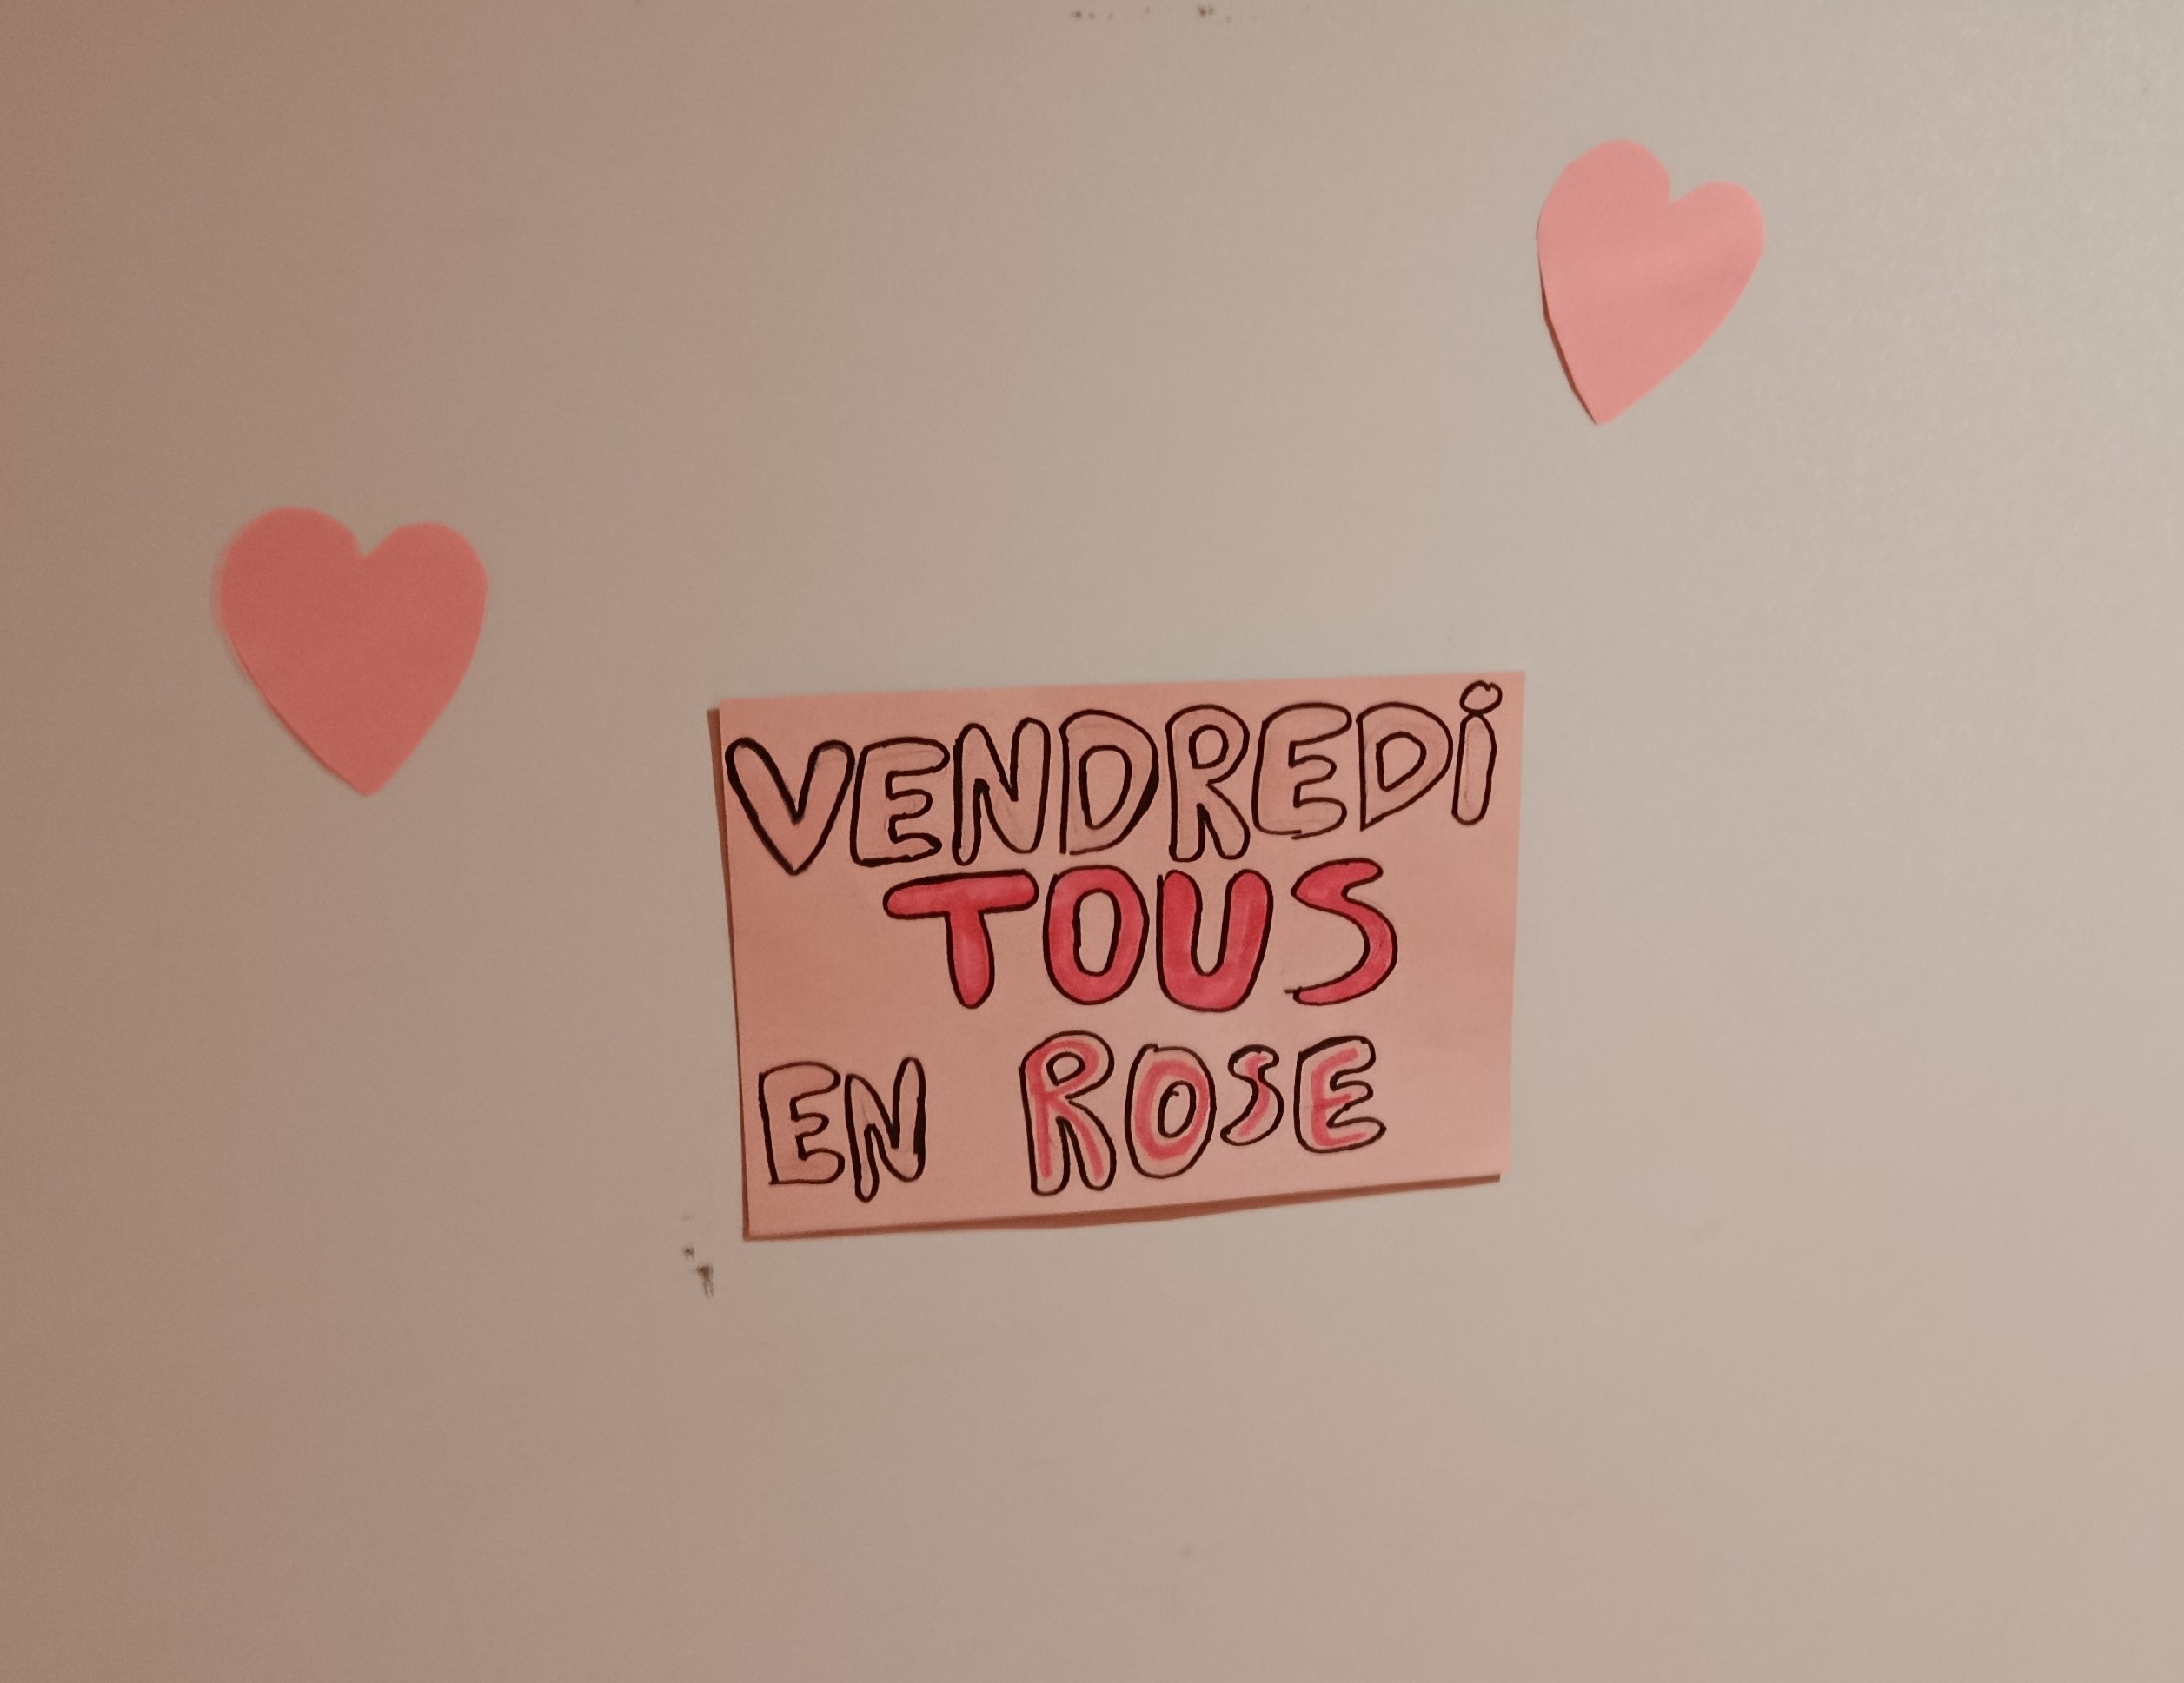 VENDREDi
TOUS
EN ROSE